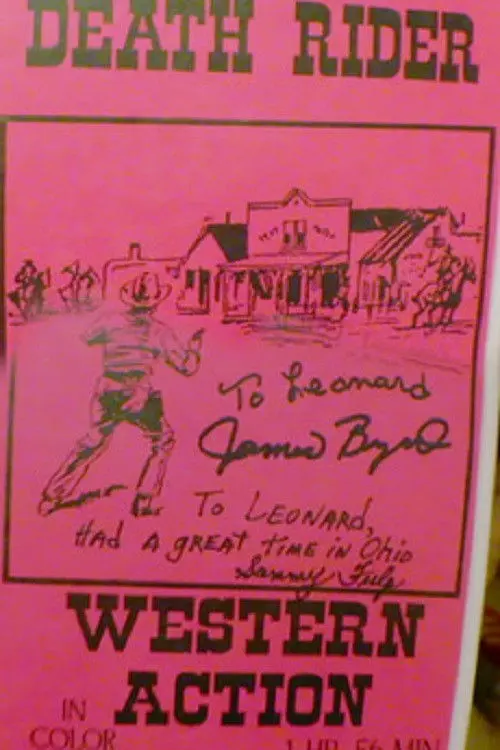 DEATH RIDER
To Leonard
James Byrd
To LEONARD,
Had A GREAT TIME in Ohio
Sammy Fulp
WESTERN
ACTION
IN
COLOR
1 HR. 56 MIN